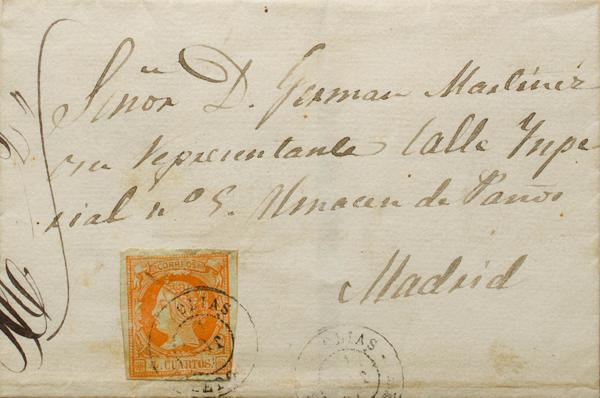 Señor D. German Martinez
su representante Calle Ynpe
rial nº 5. Almacen de Paños
Madrid
CORREOS
4 CUARTOS
OLIAS
OLIAS